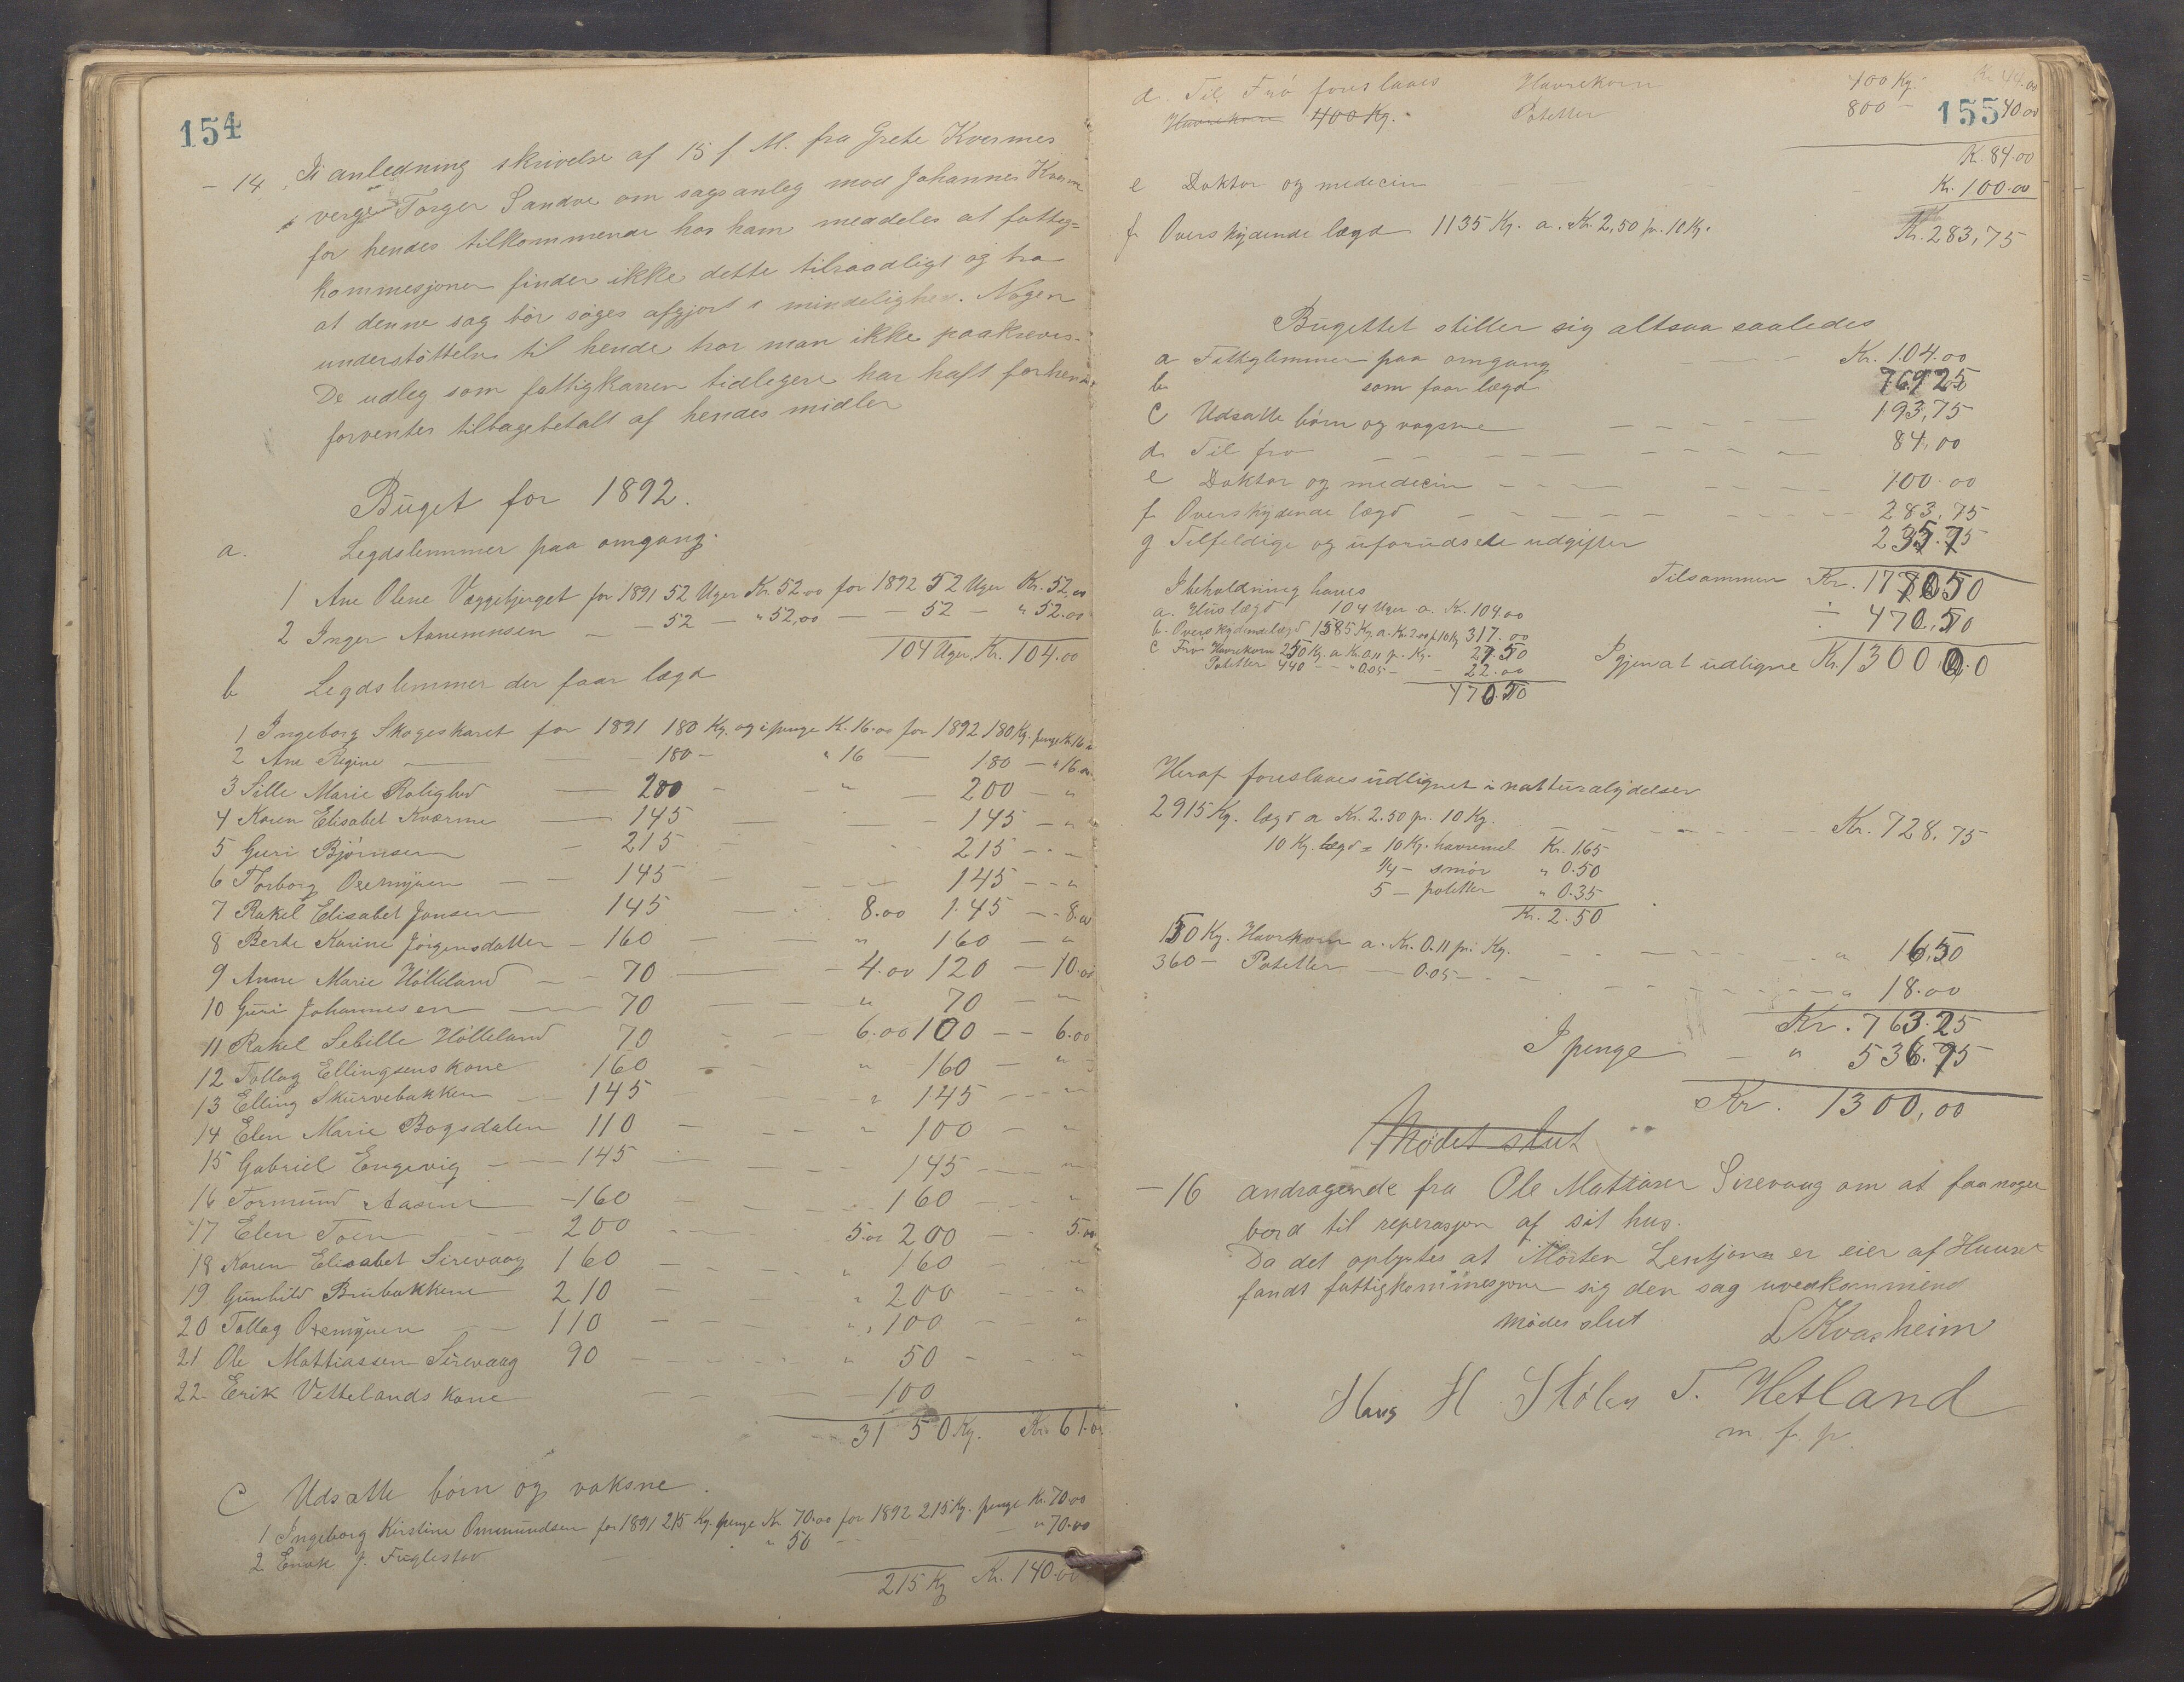 154
- 14. I anledning skrivelse af 15 f M. fra Grete Kvermes
verge Torger Sandve om sagsanleg mod Johannes
for hendes tilkommende hos ham meddeles at fattig=
kommesjonen finder ikke dette tilraadligt og tror
at denne sag bör söges afgjort i mindelighed. Nogen
understöttelse til hende tror man ikke paakreves.
De udleg som fattigkassen tidligere har haft for hende
forventes tilbagebetalt af hendes midler
Büget for 1892.
a. Legdslemmer paa omgang.
1 Ane Olene Væggebjerget for 1891 52 Uger Kr. 52.00 for 1892 52 Uger Kr. 52.00
2 Inger Aanemnsen — 52 — " 52,00 — 52 — " 52.00
104 Uger, Kr. 104.00
b Legdslemmer der faar lægd
1 Ingeborg Skogeskaret for 1891 180 Kg. og i penge Kr. 16.00 for 1892 180 Kg. penge Kr. 16
2 Ane Regine — 180 — " 16 — 180 — " 16.00
3 Sille Marie Rolighed — 200 — " — 200 — "
4 Karen Elisabet Kværme — 145 — 145 — "
5 Guri Björnsen — 215 — 215 — "
6 Torborg Oremyren — 145 — 145 — "
7 Rakel Elisabet Jonsen 145 — 8.00 145 — 8.00
8 Berte Karine Jörgensdatter — 160 — " 160 — "
9 Anne Marie Hölleland — 70 — 4.00 120 — 10.00
10 Guri Johannesen — 70 — " 70 — "
11 Rakel Sebille Hölleland 70 — 6.00 100 — 6.00
12 Tollag Ellingsens kone 160 — " 160 — "
13 Elling Skurvebakken — 145 — " 145 — "
14 Elen Marie Bogsdalen 110 — " 100 — "
15 Gabriel Engevig — 145 — 145 — "
16 Tormund Aasen — 160 — 160 — "
17 Elen Toen — 200 — 5.00 200 — 5.00
18 Karen Elisabet Sirevaag 160 — " 160 — "
19 Gunhild Brubakken 210 — " 200 — "
20 Tollag Oremyren — 110 — " 100 — "
21 Ole Mattiassen Sirevaag 90 — " 50 — "
22. Erik Vettelands kone — 100
3150 Kg. Kr. 61.00
C Udsatte börn og voksne.
1 Ingeborg Kirstine Ommundsen for 1891 215 Kg. penge Kr 70.00 for 1892 215 Kg. penge Kr. 70.00
2 Enok J. Fuglestad — " 50 — " 70.00
215 Kg Kr. 140.00
155
d. Til Frö foreslaaes Havrekorn 400 Kg. Kr. 44.00
Havrekorn 400 Kg. Potetter 800 — 40.00
K. 84.00
e Doktor og medecin — Kr. 100.00
f. Overskydende lægd 1135 Kg. a. Kr. 2,50 pr. 10 Kg. Kr. 283,75
Bugettet stiller sig altsaa saaledes
a Fattiglemmer paa omgang — Kr. 104.00
b som faar lægd 769 25
C Udsatte börn og vogsne — 193,75
d Til frö — 84,00
e Doktor og medecin — 100.00
f. Overskydende lægd — 283,75
g Tilfeldige og uforudsete udgifter 235.75
Tilsammen Kr. 1770.50
I beholdning haves
a. Huslægd 104 Uger a. Kr. 104.00
÷ 470,50
b. Overskydende lægd 1585 Kg. a. Kr. 2.00 p. 10 Kg 317.00
C Frö Havrekorn 250 Kg. a Kr. 0.11 pr. Kg. 27.50
Potetter 440 — " 0.05 — 22.00
470.50
Igjen at udligne Kr. 1300 0.0
Heraf foreslaaes udlignet i natturalydelser
2915 Kg. lægd a Kr. 2.50 pr. 10 Kg. — Kr. 728.75
10 Kg. lægd = 10 Kg. havremel Kr. 1.65
1/4 — smör " 0.50
5 — potetter " 0.35
Kr. 2.50
150 Kg. Havrekorn a. Kr. 0.11 pr. Kg. — " 16,50
360 — Potetter — 0.05 — " 18.00
Kr. 763.25
I penge — " 536.75
Kr. 1300,00
Mödet slut
- 16 andragende fra Ole Mattiasen Sirevaag om at faa nogen
bord til reperasjon af sit hus.
Da det oplystes at Morten Lentjonn er eier af Huuset
fandt fattigkommesjonen sig den sag uvedkommend
Mödes slut
L Kvasheim
Hans H Stölen T. Hetland
m. f. p.